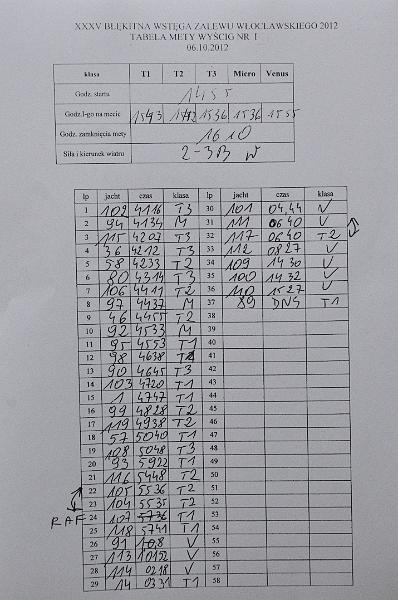 XXXV BŁĘKITNA WSTĘGA ZALEWU WŁOCŁAWSKIEGO 2012
TABELA METY WYŚCIG NR 1
06.10.2012
klasa T1 T2 T3 Micro Venus
Godz. startu 1455
Godz.1-go na mecie 1543 1536 1536 1555
Godz. zamknięcia mety 1610
Siła i kierunek wiatru 2-3B W
lp jacht czas klasa lp jacht czas klasa
1 102 4116 T3 30 101 04.44 V
2 94 4134 M 31 111 0640 V
3 115 4207 T3 32 117 0640 T2
4 36 4212 T3 33 112 0827 V
5 58 4233 T2 34 109 1430 V
6 80 4314 T3 35 100 1432 V
7 106 4411 T2 36 110 1527 V
8 97 4437 M 37 89 DNS T1
9 46 4455 T2 38
10 92 4533 M 39
11 95 4553 T1 40
12 98 4638 41
13 90 4645 T3 42
14 103 4720 T1 43
15 1 4747 T1 44
16 99 4828 T2 45
17 119 4938 T2 46
18 57 5040 T1 47
19 108 5048 T3 48
20 93 5922 T1 49
21 116 5448 T2 50
22 105 5536 T2 51
23 104 5535 T2 52
RAF 24 107 5736 T1 53
25 118 5741 T1 54
26 91 V 55
27 113 10152 V 56
28 114 0218 V 57
29 14 0331 T1 58